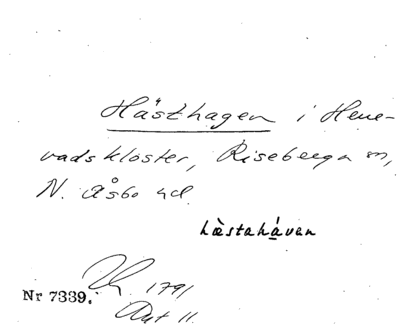 Hästhagen i Herre-
vadskloster, Riseberga sn,
N. Åsbo hd.
hæ̀stahá̱ven
1791
Nr 7339.
Akt 11.